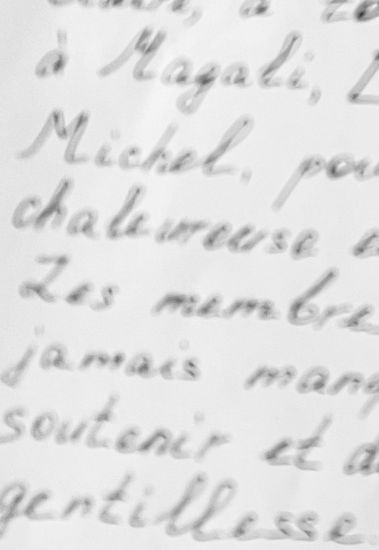 à Magali,
Michel, pour
chaleureuse
Les membre
jamais manq
soutenir et d
gentillesse